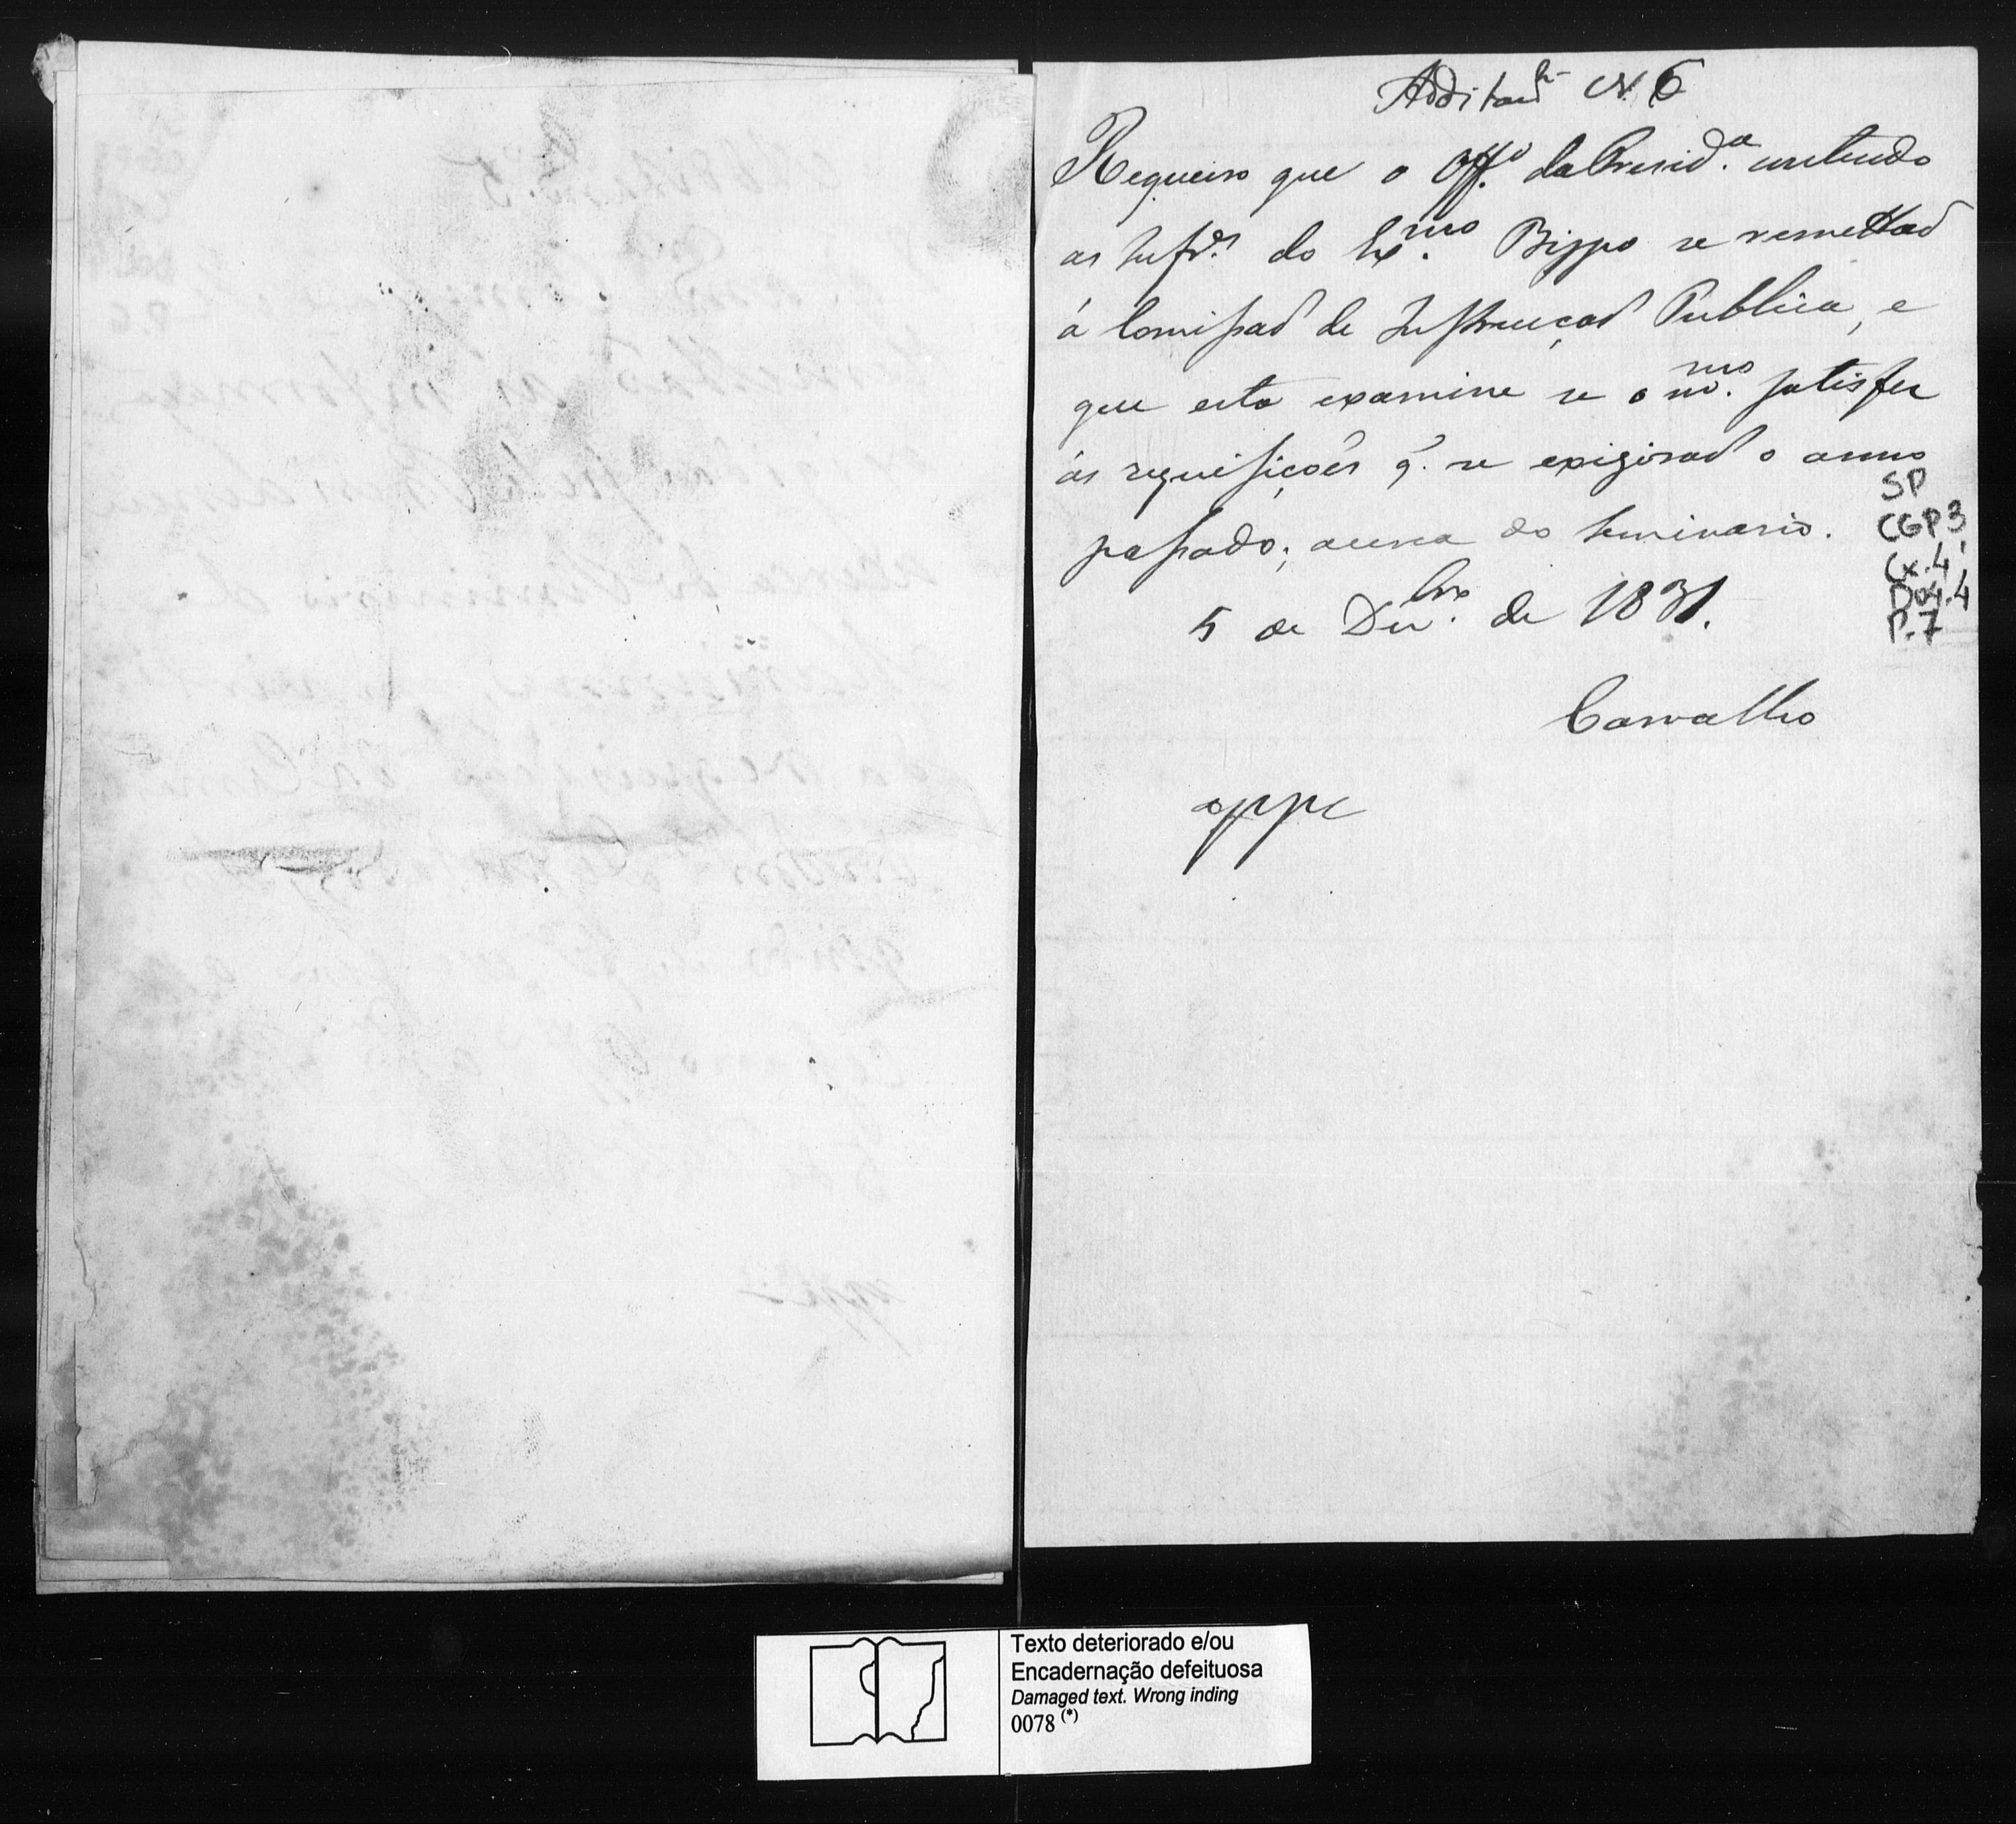 Additam.to N. 6
Requeiro que o Off.o da Presid.a contendo
as Inf.es do Ex.mo Bispo se remettaõ
á Comissaõ de Instrucçaõ Publica, e
que esta examine se o m.mo satisfez
ás requisiçoẽs q̃. se exigiraõ o anno
passado, acerca do Seminario.
5 de Dez.bro de 1831.
Carvalho
SP
CGP3,
Cx.4,
Do4.4
P.7
Texto deteriorado e/ou
Encadernação defeituosa
Damaged text. Wrong inding
0078 (*)